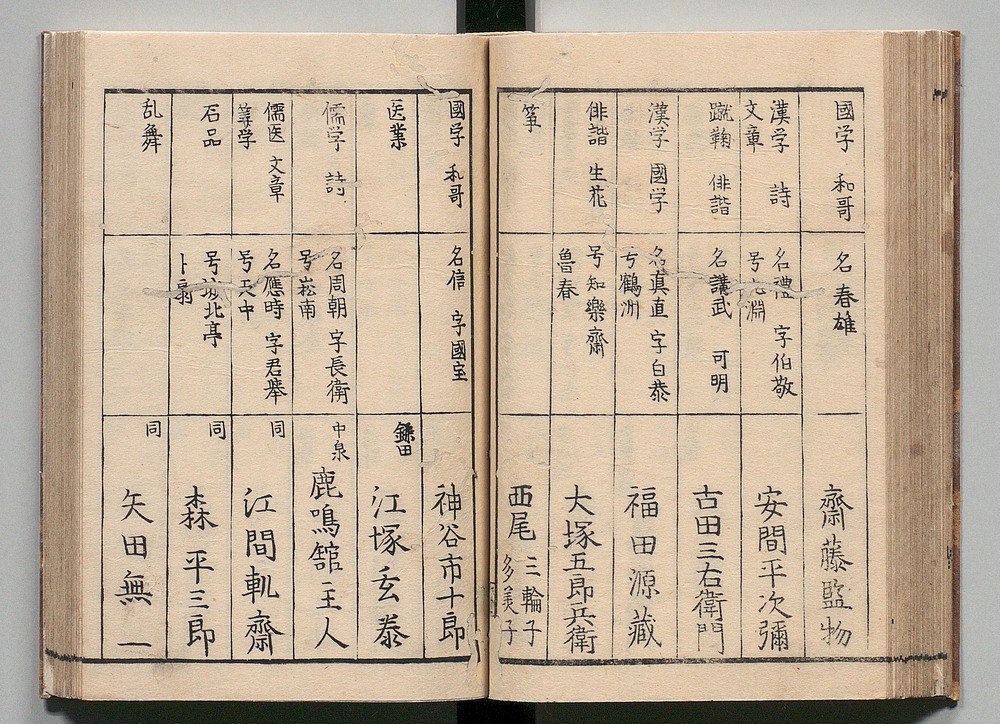 國学 和哥
名春雄
齋藤監物
漢学 詩
文章
名禮 字伯敬
号 淵
安間平次彌
蹴鞠 俳諧
名講武 可明
古田三右衛門
漢学 國学
名真直 字白恭
号鶴洲
福田源藏
俳諧 生花
号知樂齋
魯春
大塚五郎兵衛
筝
西尾 三輪子
多美子
國学 和哥
名信 字國宝
神谷市十郎
医業
鎌田
江塚玄泰
儒学 詩
名周朝 字長衛
号崧南
中泉
鹿鳴舘主人
儒医 文章
筭学
名應時 字君舉
号天中
同
江間軏齋
石品
号城北亭
卜翁
同
森平三郎
乱舞
同
矢田無一